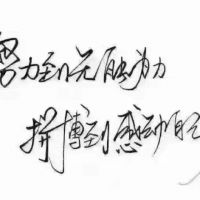 努力到无能为力
拼博到感动自己